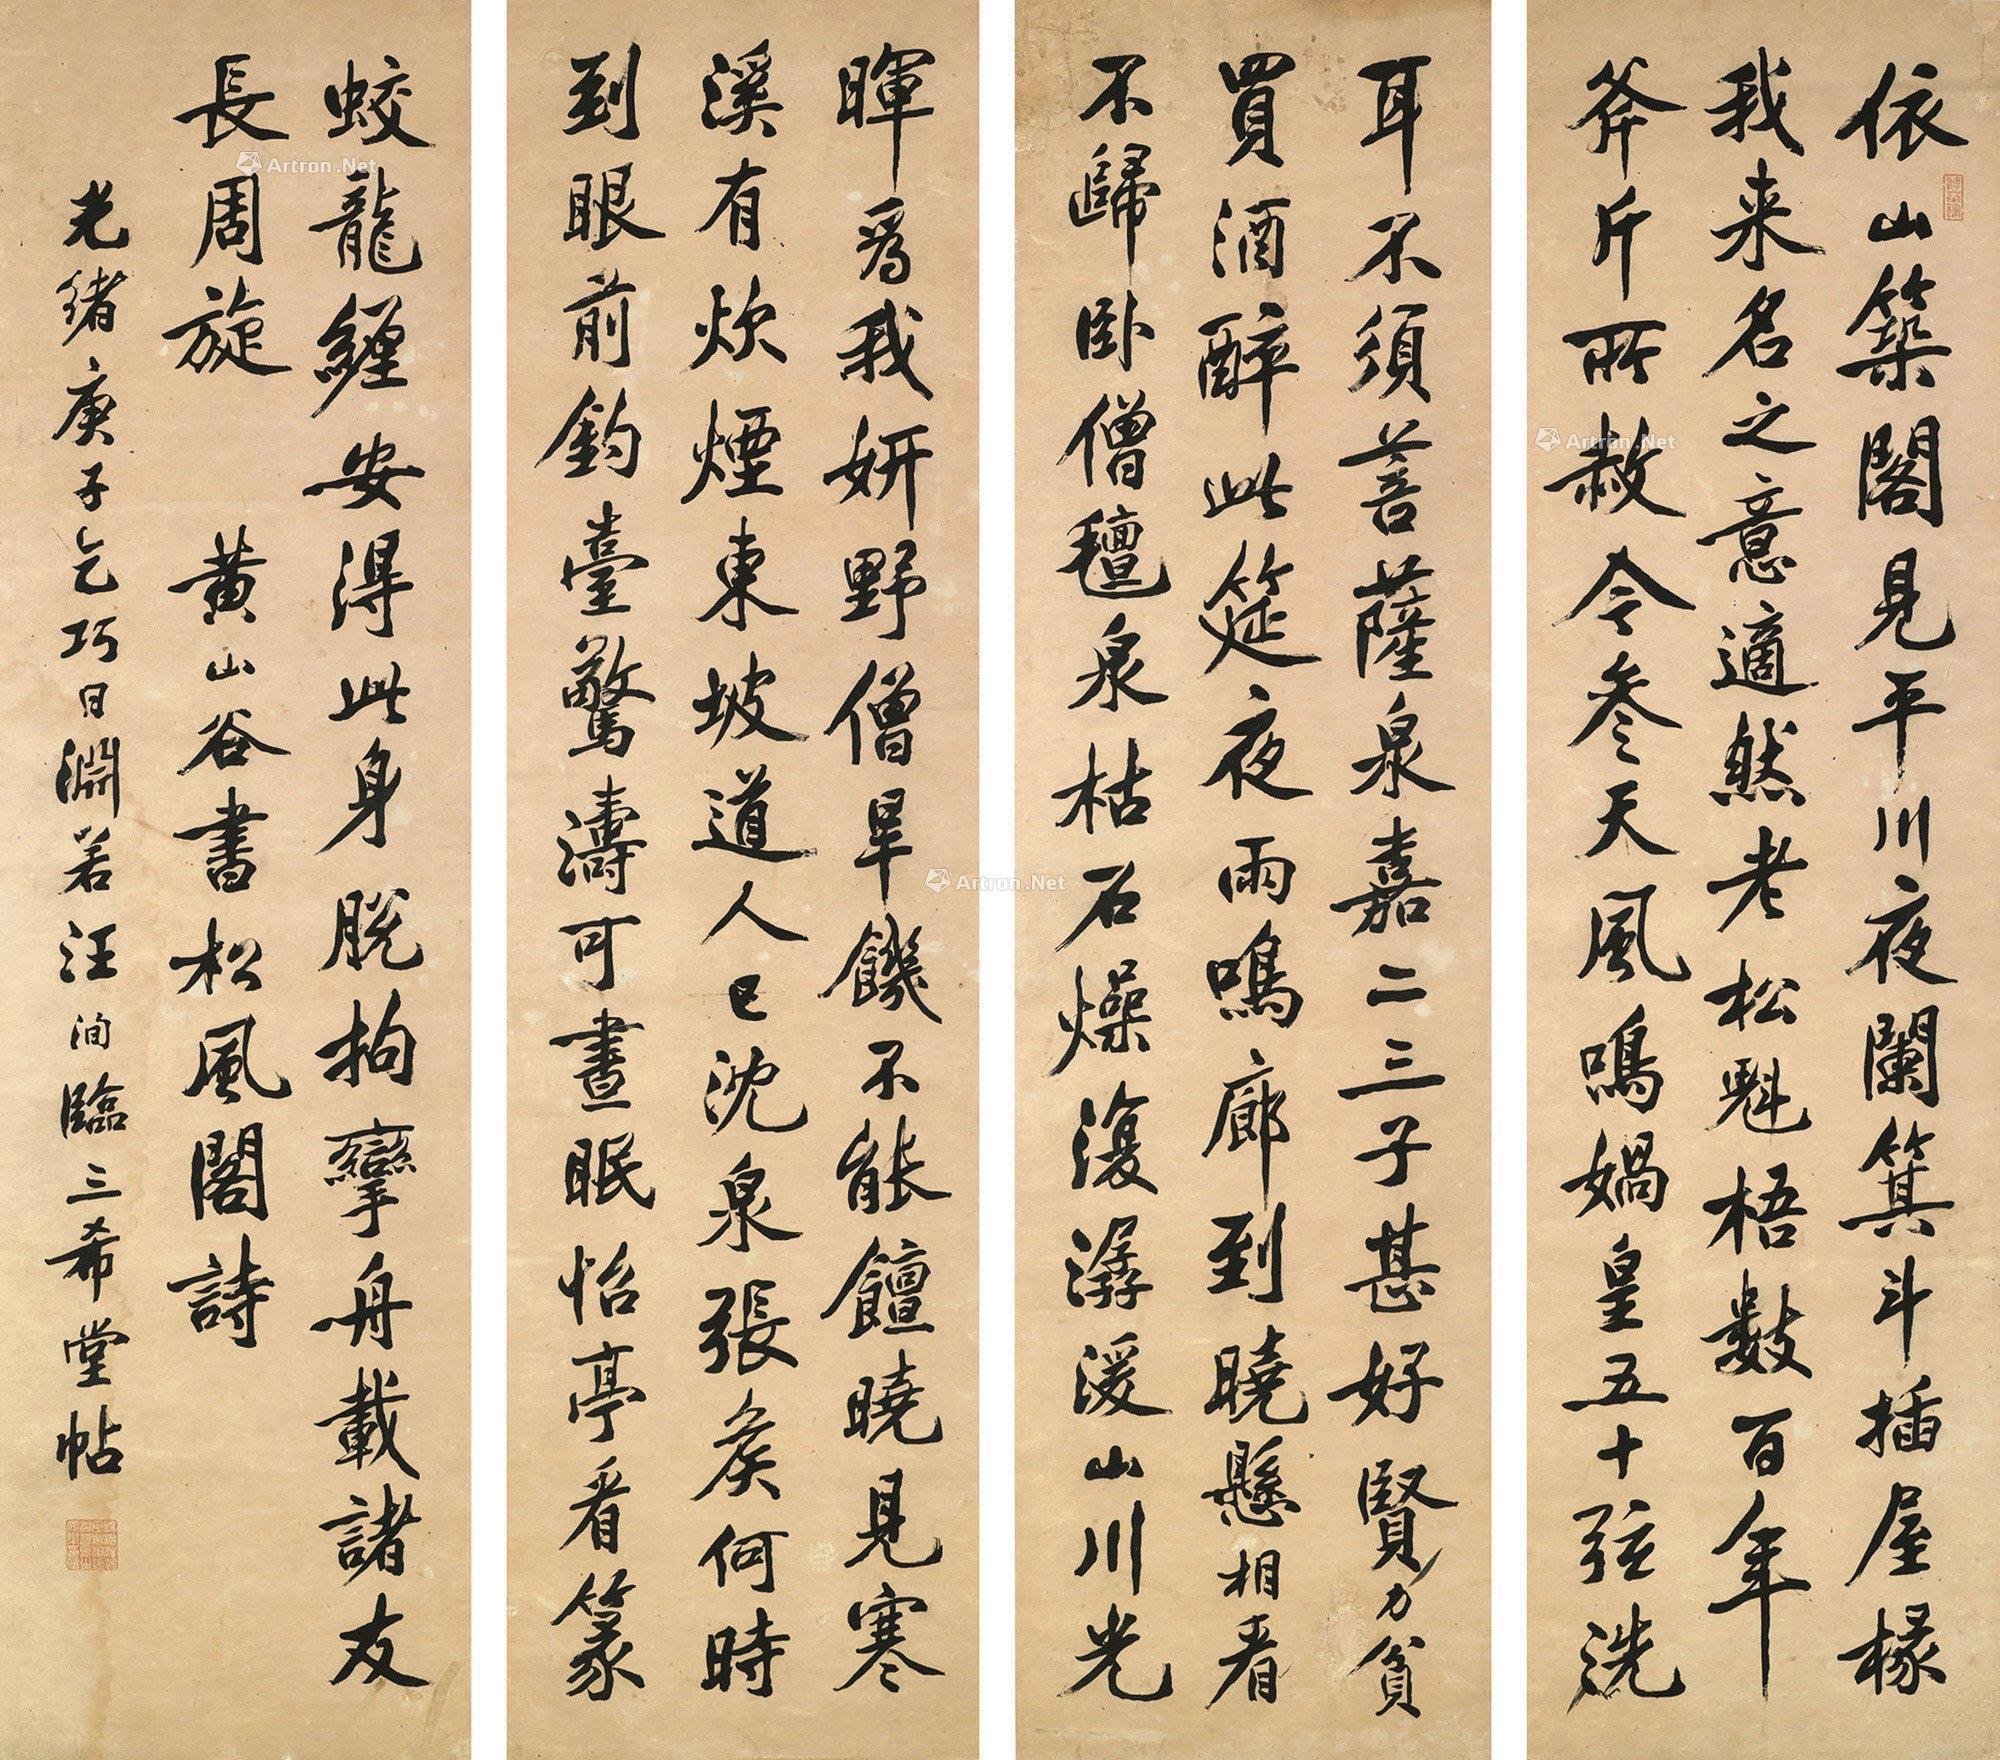 依山築閣見平川夜闌箕斗插屋椽
我来名之意適然老松魁梧數百年
斧斤所赦令參天風鳴媧皇五十弦洗
耳不須菩薩泉嘉二三子甚好賢力貧
買酒醉此筵夜雨鳴廊到曉懸相看
不歸卧僧氊泉枯石燥復潺湲山川光
暉爲我妍野僧旱饑不能饘曉見寒
溪有炊煙東坡道人已沈泉張矦何時
到眼前釣臺驚濤可晝眠怡亭看篆
蛟龍纏安得此身脫拘攣舟載諸友
長周旋 黃山谷書松風閣詩
光緒庚子乞巧日淵若汪洵臨三希堂帖
Artron.Net
Artron.Net
Artron.Net